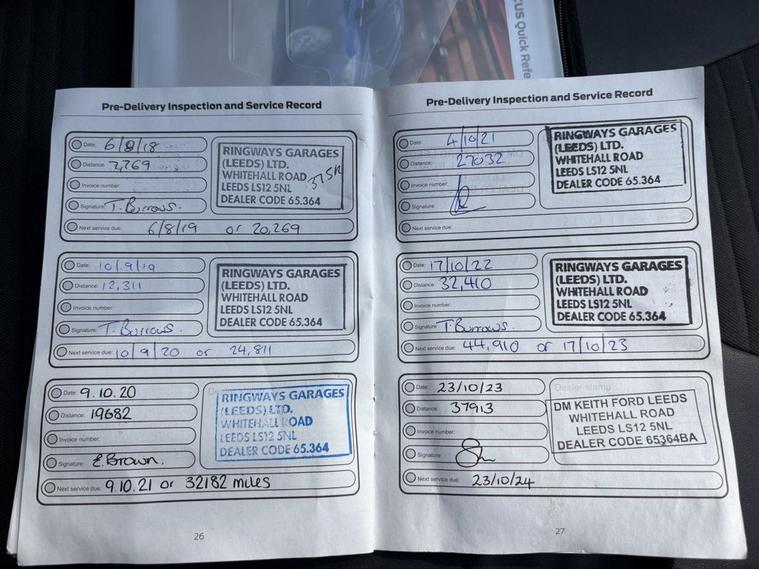 CUS Quick Refe
Pre-Delivery Inspection and Service Record
Date: 6/8/18
Distance: 7,769
Invoice number:
Signature: T. Burrows.
Next service due: 6/8/19 or 20,269
RINGWAYS GARAGES
(LEEDS) LTD.
WHITEHALL ROAD
LEEDS LS12 5NL
DEALER CODE 65.364
Date: 10/9/19
Distance: 12,311
Invoice number:
Signature: T. Burrows.
Next service due: 10/9/20 or 24,811
RINGWAYS GARAGES
(LEEDS) LTD.
WHITEHALL ROAD
LEEDS LS12 5NL
DEALER CODE 65.364
Date: 9.10.20
Distance: 19682
Invoice number:
Signature: E. Brown.
Next service due: 9.10.21 or 32182 miles
RINGWAYS GARAGES
(LEEDS) LTD.
WHITEHALL ROAD
LEEDS LS12 5NL
DEALER CODE 65.364
26
Pre-Delivery Inspection and Service Record
Date: 4/10/21
Distance: 27032
Invoice number:
Signature:
Next service due:
RINGWAYS GARAGES
(LEEDS) LTD.
WHITEHALL ROAD
LEEDS LS12 5NL
DEALER CODE 65.364
Date: 17/10/22
Distance: 32,410
Invoice number:
Signature: T. Burrows.
Next service due: 44,910 or 17/10/23
RINGWAYS GARAGES
(LEEDS) LTD.
WHITEHALL ROAD
LEEDS LS12 5NL
DEALER CODE 65.364
Date: 23/10/23
Distance: 37913
Invoice number:
Signature:
Next service due: 23/10/24
Dealer stamp
DM KEITH FORD LEEDS
WHITEHALL ROAD
LEEDS LS12 5NL
DEALER CODE 65364BA
27